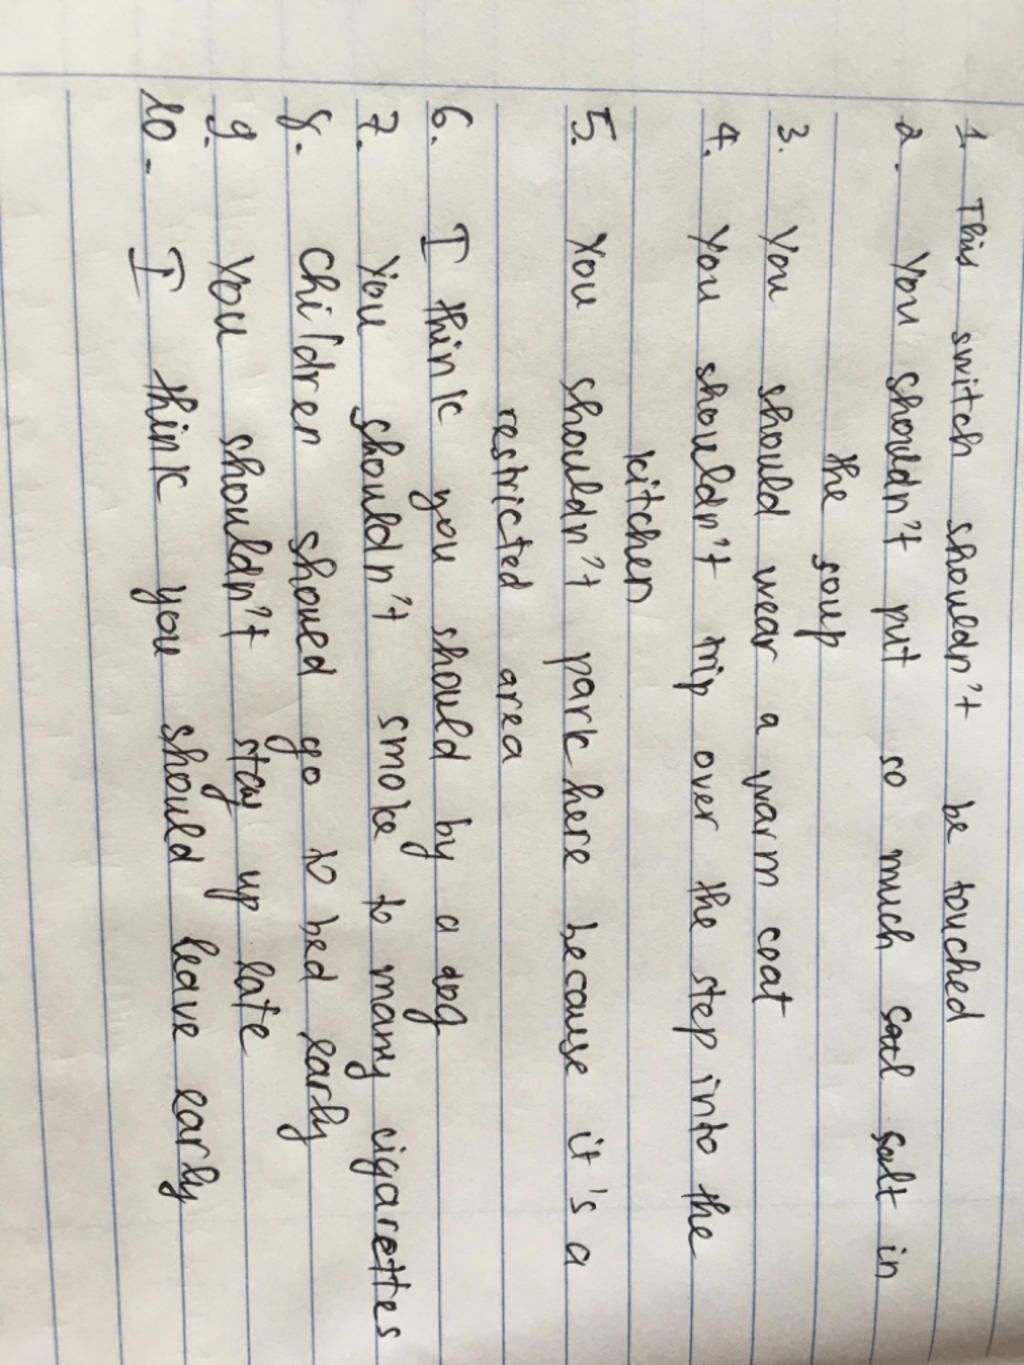 1. This switch shouldn't be touched
2. You shouldn't put so much sael salt in
the soup
3. You should wear a warm coat
4. You shouldn't trip over the step into the
kitchen
5. You shouldn't park here because it's a
restricted area
6. I think you should by a dog
7. You shouldn't smoke to many cigarettes
8. Children shoued go to bed early
9. You shouldn't stay up late
10. I think you should leave early